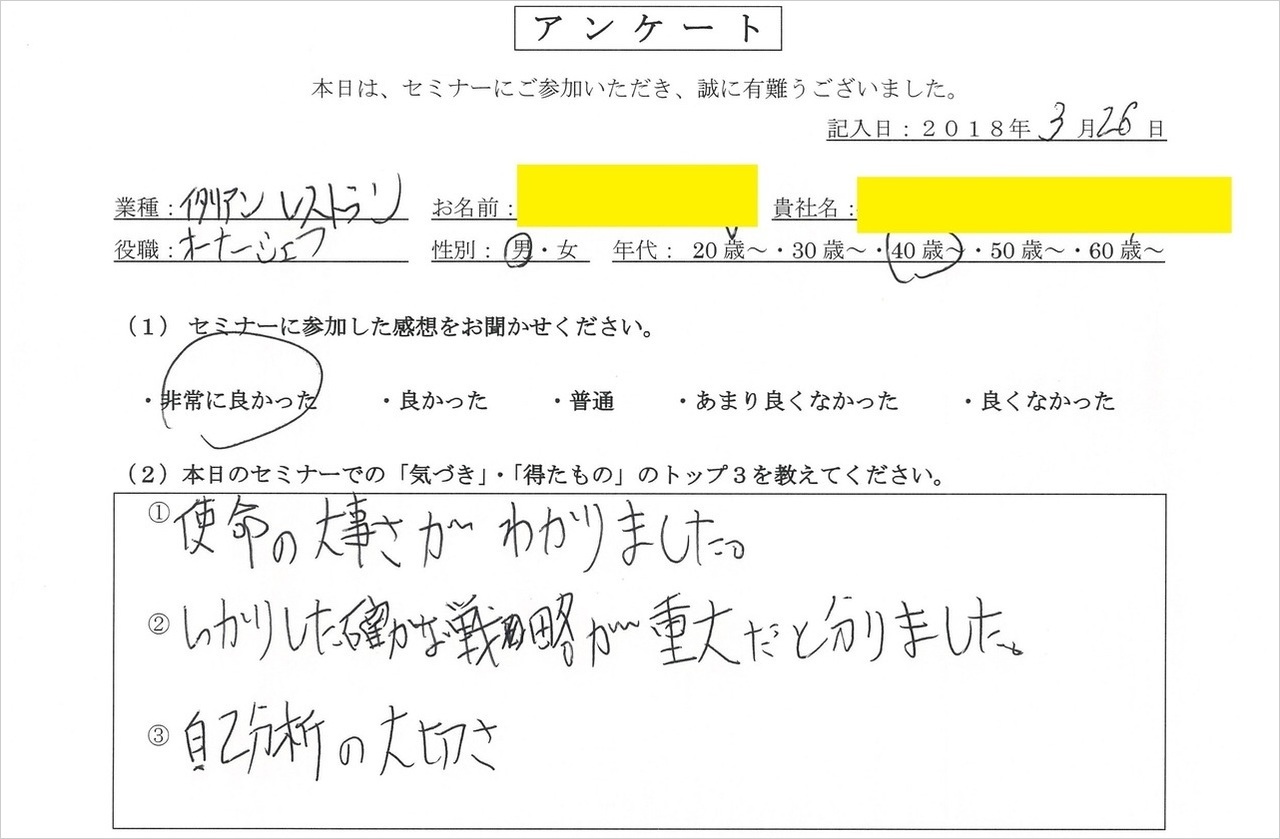 アンケート
本日は、セミナーにご参加いただき、誠に有難うございました。
記入日：２０１８年 3 月 26 日
業種：イタリアン レストラン お名前： 貴社名：
役職：オーナーシェフ 性別： 男・女 年代： 20歳～・30歳～・40歳～・50歳～・60歳～
（１） セミナーに参加した感想をお聞かせください。
・非常に良かった ・良かった ・普通 ・あまり良くなかった ・良くなかった
（２）本日のセミナーでの「気づき」・「得たもの」のトップ３を教えてください。
① 使命の大事さが わかりました。
② しっかりした確かな戦略が重大だと分りました。
③ 自己分析の大切さ